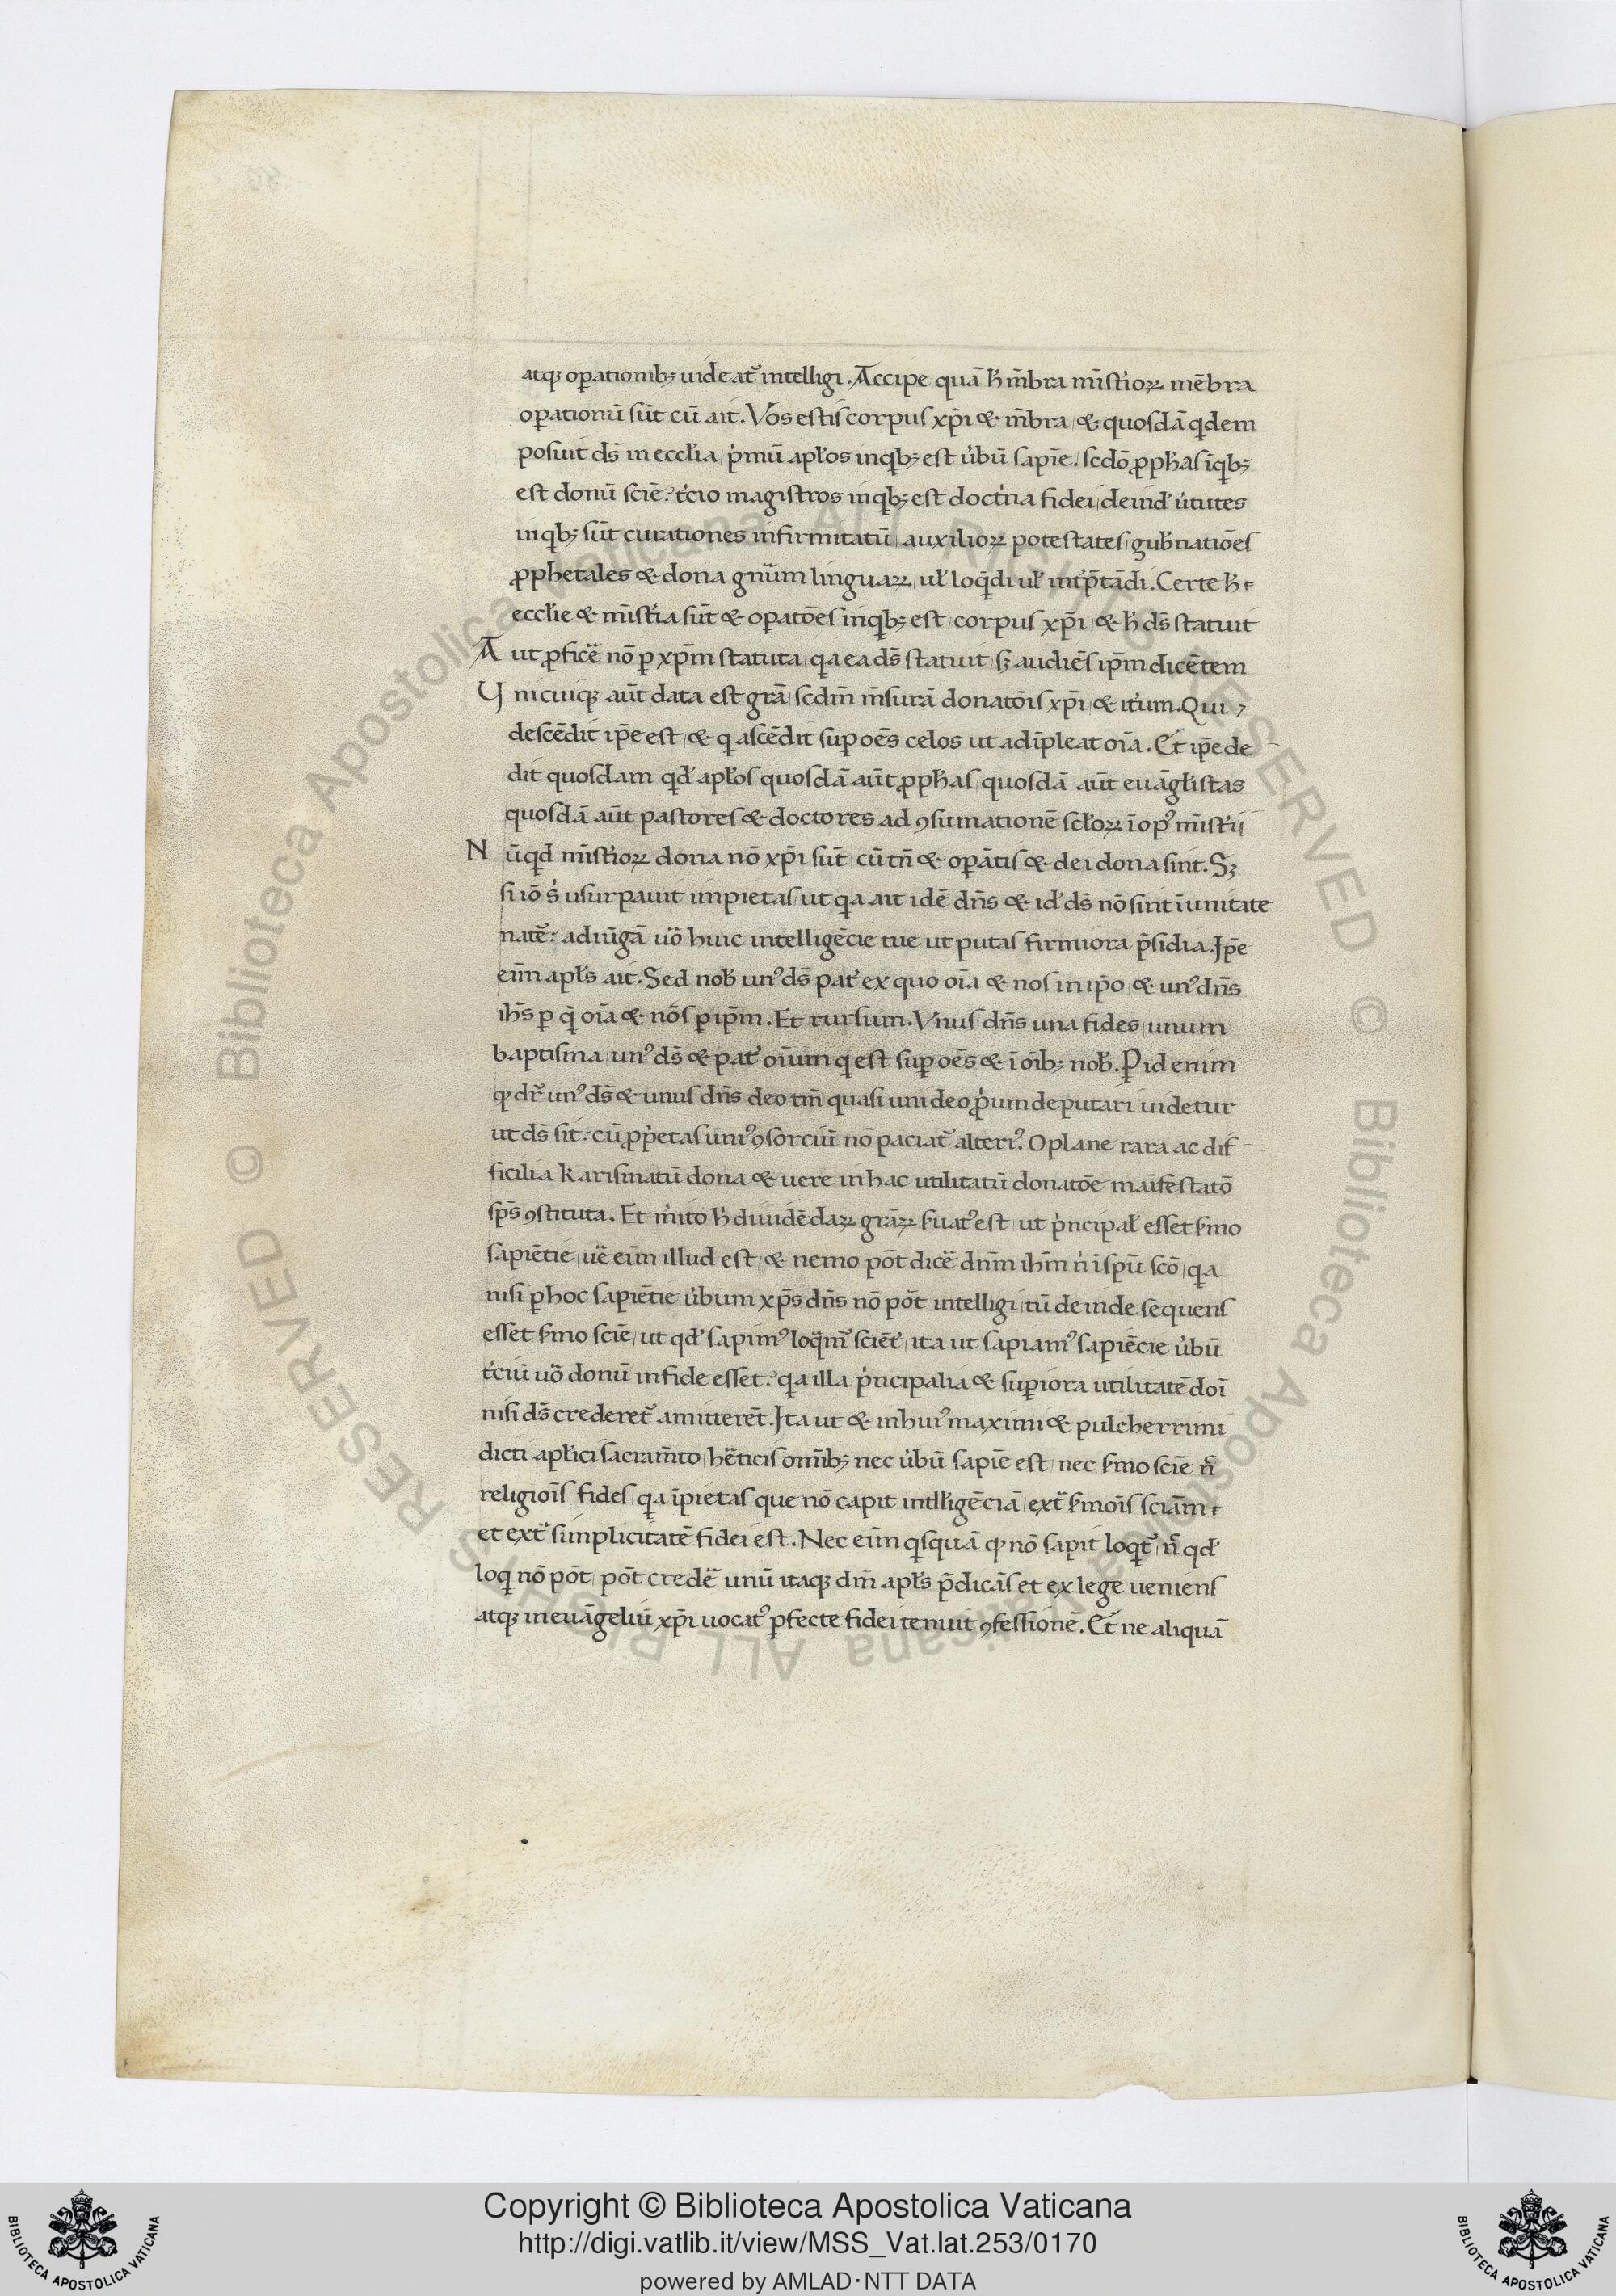 atqꝫ oꝑationibꝫ uideat᷑ intelligi. Accipe quā h̄ mb̄ra mīst̓ioꝝ mēbra
oꝑationū sūt cū ait. Vos estis corpus xp̄i & mb̄ra & quosdā qdem
posuit ds̄ in ecclīa p̓mū apl̄os inqbꝫ est u̓bū sapīe. scdō ꝓphas īqbꝫ
est donū sciē? t̓cio magistros inqbꝫ est doct̓na fidei deind̄ u̓tutes
inqbꝫ sūt curationes infirmitatū auxilioꝝ potestates gub̄natiōes
ꝓphetales & dona gn̄um linguaꝝ ul̄ loq̄di ul̄ int̓p̄tādi. Certe h̄
ecclīe & mīst̓ia sūt & oꝑatōes inqbꝫ est corpus xp̄i & h̄ ds̄ statuit
A ut ꝓficē nō ꝑ xp̄m statuta qa ea ds̄ statuit sꝫ audiēs ip̄m dicētem
U nicuiqꝫ aūt data est grā scdm̄ m̄surā donatōis xp̄i & it̓um. Qui
descēdit ip̄e est & q ascēdit suꝑ oēs celos ut adīpleat oīa. Et ip̄e de
dit quosdam qd̄ apl̄os quosdā aūt ꝓphas quosdā aūt euāgl̄istas
quosdā aūt pastores & doctores ad ꝯsumationē sc̄loꝝ ī op̓ mīst̓ii
N ūqd mīst̓ioꝝ dona nō xp̄i sūt cū tn̄ & oꝑātis & dei dona sint. Sꝫ
si iō s̓ usurpauit impietas ut qa ait idē dn̄s & id̄ ds̄ nō sint ī unitate
natē: adiūgā uō huic intelligēcie tue ut putas firmiora p̄sidia. Ip̄e
eīm apl̄s ait. Sed nob̄ unꝰ ds̄ pat̓ ex quo oīa & nos in ip̄o & unꝰ dn̄s
ih̄s ꝑ q̄ oīa & nōs ꝑ ip̄m. Et rursum. Vnus dn̄s una fides unum
baptisma unꝰ ds̄ & pat̓ oīum q est suꝑ oēs & ī oībꝫ nob̄. Ꝑ id enim
ꝙ dr̄ unꝰ ds̄ & unus dn̄s deo tm̄ quasi uni deo ꝓ̓um deputari uidetur
ut ds̄ sit: cū ꝓp̓etas uniꝰ ꝯsorciū nō paciat᷑ alteriꝰ. O plane rara ac dif
ficilia karismatū dona & uere in hac utilitatū donatōe maīfestatō
sp̄s ꝯstituta. Et m̓ito h̄ diuidēdaꝝ grāꝝ ẜuatꝰ est ut p̓ncipal̄ esset ẜmo
sapiētie uē eīm illud est & nemo pōt dicē dn̄m ih̄m n̓ ī spū scō qa
nisi ꝑ hoc sapiētie u̓bum xp̄s dn̄s nō pōt intelligi tū deinde sequens
esset ẜmo sciē ut qd̄ sapimꝰ loq̄m̓ sciēt̓ ita ut sapiamꝰ sapiēcie u̓bū
t̓ciū uō donū in fide esset? qa illa p̓ncipalia & suꝑiora utilitatē doī
nisi ds̄ crederet᷑ amitterēt. Ita ut & in huiꝰ maximi & pulcherrimi
dicti apl̄ici sacram̄to hēticis om̄ibꝫ nec u̓bū sapiē est nec ẜmo sciē n̄
religiois̄ fides qa īpietas que nō capit intll̄igēciā ext̄ ẜmois̄ sciām
et ext̄ simplicitatē fidei est. Nec eīm qsquā ꝙ nō sapit loqt᷑ n̄ qd̄
loq nō pōt pōt credē unū itaqꝫ dm̄ apl̄s p̄dicās et ex lege ueniens
atqꝫ in euāgeliū xp̄i uocatꝰ ꝑfecte fidei tenuit ꝯfessionē. Et ne aliquā
Copyright © Biblioteca Apostolica Vaticana
http://digi.vatlib.it/view/MSS_Vat.lat.253/0170
powered by AMLAD·NTT DATA